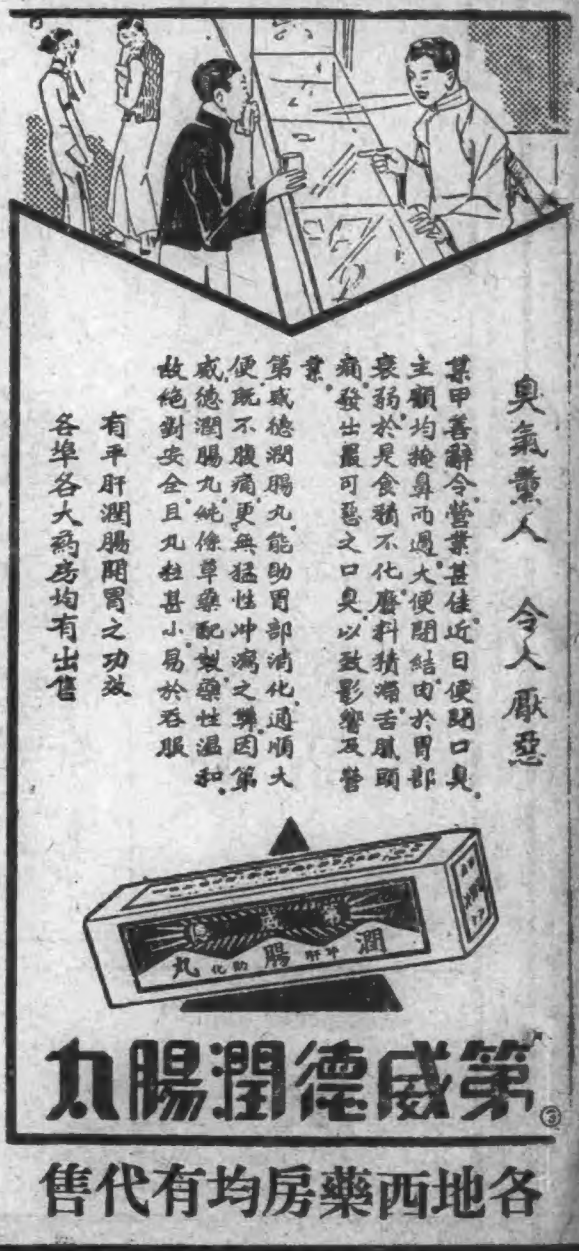 臭氣薰人 令人厭惡
某甲善辭令。營業甚佳。近日便閉口臭。
主顧均掩鼻而過。大便閉結。由於胃部
衰弱。於是食積不化。廢料積滯。舌膩頭
痛。發出最可惡之口臭。以致影響及營
業。
第威德潤腸丸。能助胃部消化。通順大
便。既不腹痛。更無猛性冲瀉之弊。因第
威德潤腸丸純係草藥配製。藥性溫和。
故絕對安全。且丸粒甚小。易於吞服
有平肝潤腸開胃之功效
各埠各大药房均有出售
第威德
潤腸丸
平肝 助化
第威德潤腸丸
各地西藥房均有代售